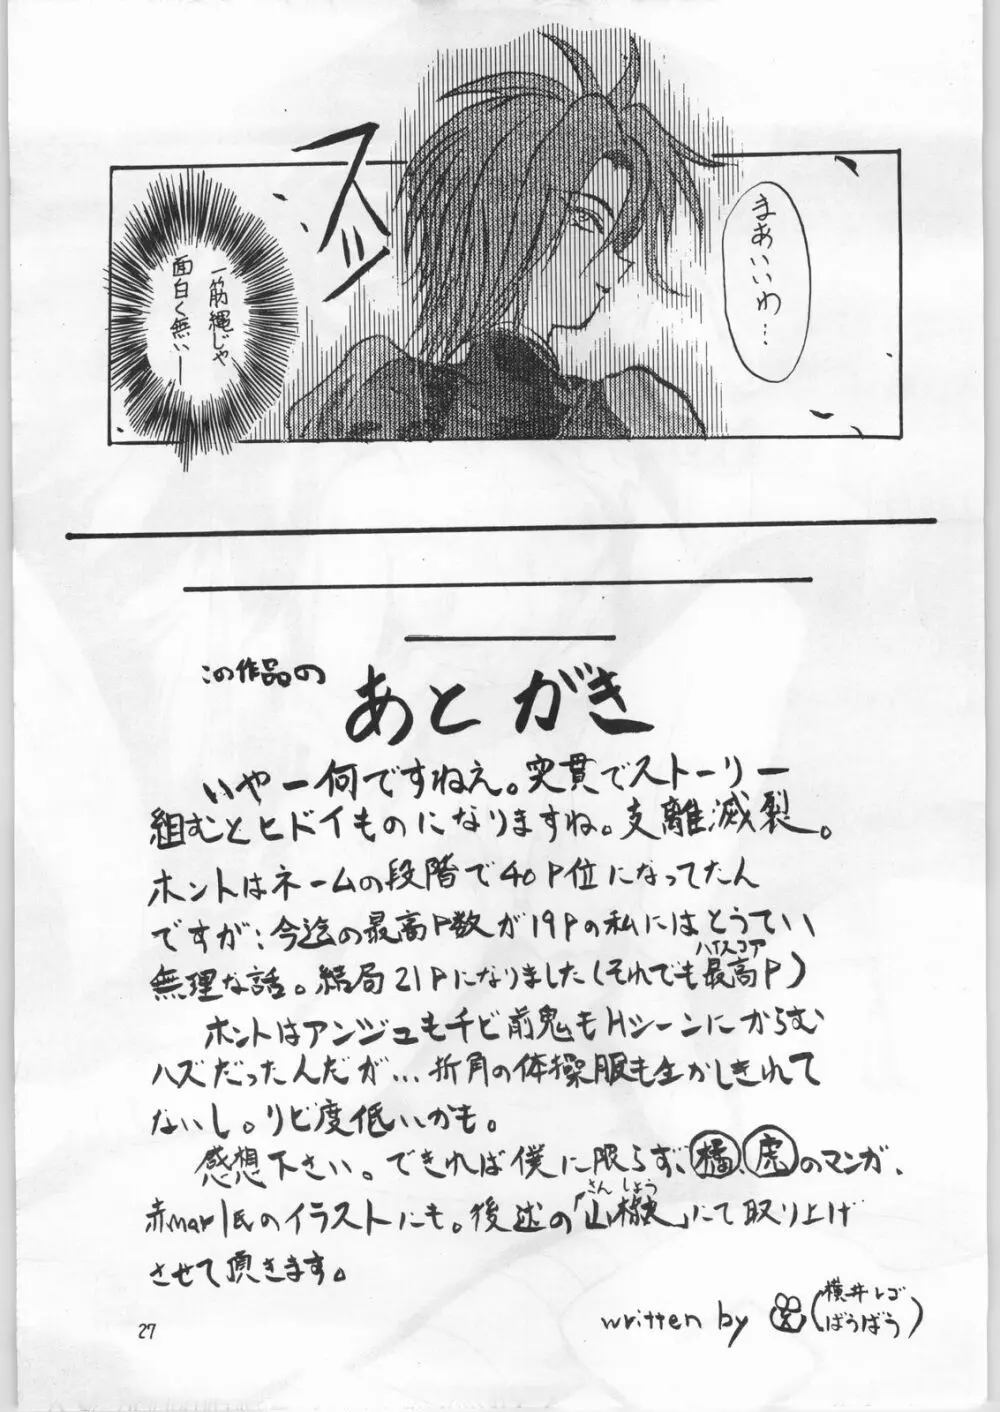 まあいいわ…
スッ
一筋縄じゃ
面白く無い―
この作品の
あとがき
いやー何ですねえ。突貫でストーリー
組むとヒドイものになりますね。支離滅裂。
ホントはネームの段階で40P位になってたん
ですが…今迄の最高P数が19Pの私にはとうてい
無理な話。結局21Pになりました(それでも最高P)
ハイスコア
ホントはアンジュもチビ前鬼もHシーンにからむ
ハズだったんだが…折角の体操服も生かしきれて
ないし。リビ度低いかも。
感想下さい。できれば僕に限らず、橘、虎のマンガ、
赤mar氏のイラストにも。後述の「山椒」にて取り上げ
さんしょう
させて頂きます。
written by (横井レゴ
ばうばう)
27